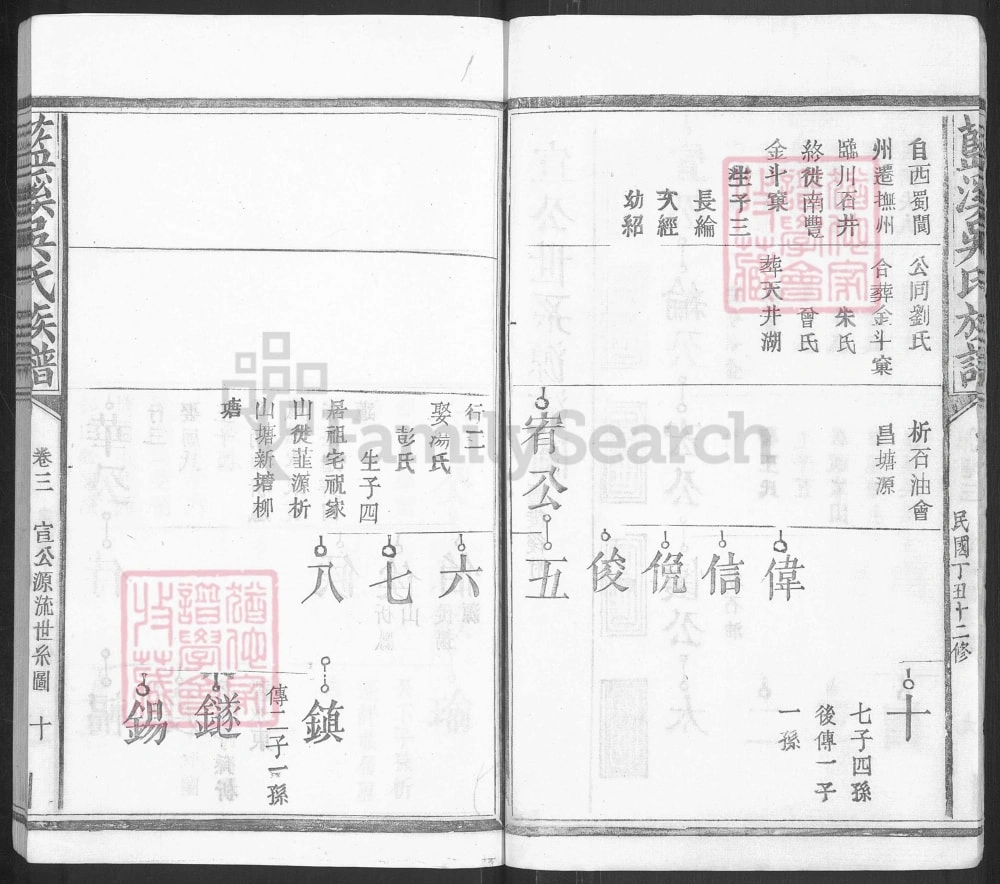 藍溪吳氏族譜
民國丁丑十二修
自西蜀閬
州遷撫州
臨川石井
終徙南豐
金斗窠
生子三
長綸
次經
幼紹
公同劉氏
合葬金斗窠
朱氏
曾氏
葬天井湖
析石油會
昌塘源
宥公
十
七子四孫
後傳一子
一孫
偉
信
倪
俊
五
行二
娶湯氏
彭氏
生子四
居祖宅祝家
山徙韮源析
山塘新塘柳
塘
六
七
八
鎮
傳二子一孫
鐩
錫
藍溪吳氏族譜
卷三
宣公源流世系圖
十
FamilySearch